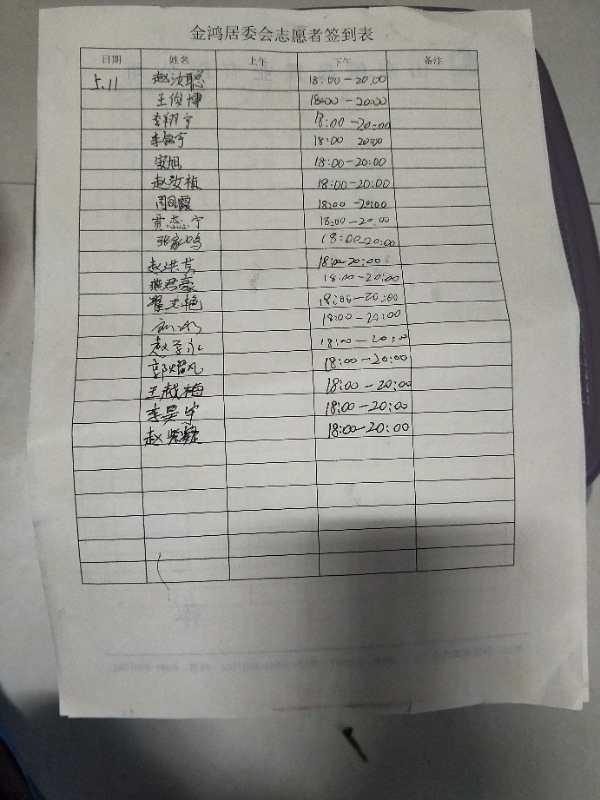 金鸿居委会志愿者签到表
日期 姓名 上午 下午 备注
5.11 赵汝聪 18:00-20:00
王俊博 18:00-20:00
李翔宁 18:00-20:00
18:00 20:00
安旭 18:00-20:00
赵汝桢 18:00-20:00
周凤霞 18:00-20:00
贾蕊宁 18:00-20:00
张家鸣 18:00-20:00
赵洪英 18:00-20:00
燕君豪 18:00-20:00
翟文艳 18:00-20:00
18:00-20:00
18:00-20:00
郭熠凡 18:00-20:00
王梅 18:00-20:00
李昊宇 18:00-20:00
赵 18:00-20:00